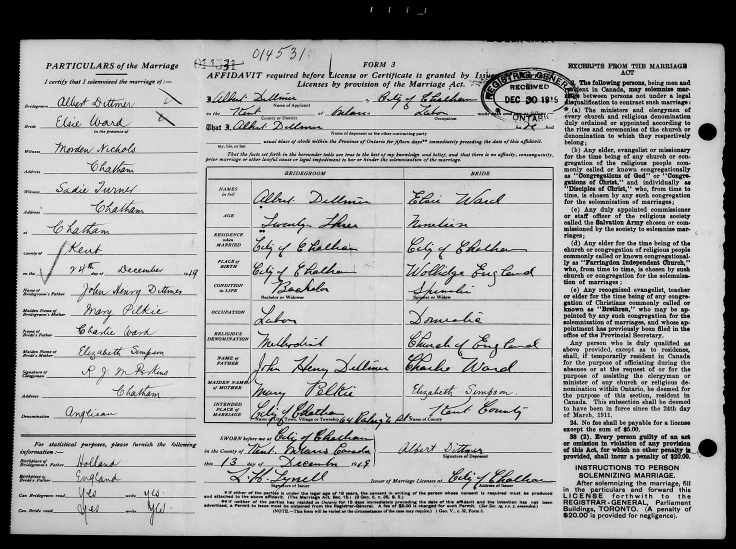 PARTICULARS of the Marriage
I certify that I solemnized the marriage of:—
Bridegroom Albert Dittmer
Bride Elsie Ward
in the presence of
Witness Morden Nichols
Address Chatham
Witness Sadie Turner
Address Chatham
at Chatham
County of Kent
on the 24th day of December 1919
Name of Bridegroom's Father John Henry Dittmer
Maiden Name of Bridegroom's Mother Mary Pelkie
Name of Bride's Father Charlie Ward
Maiden Name of Bride's Mother Elizabeth Simpson
Signature of Clergyman R. J. M. Perkins
Address Chatham
Denomination Anglican
For statistical purposes, please furnish the following
information:—
Birthplace of Bridegroom's Father Holland
Birthplace of Bride's Father England
Can Bridegroom read yes write yes
Can Bride read yes write yes
014531
FORM 3
AFFIDAVIT required before License or Certificate is granted by Issuer
Licenses by provision of the Marriage Act.
I Albert Dittmer City of Chatham
Name of Applicant
Kent Ontario Labor
County or District Occupation
That I Albert Dittmer and
Name of deponent or the other contracting party
usual place of abode within the Province of Ontario for fifteen days immediately preceding the date of this affidavit.
That the facts set forth in the hereunder table are true to the best of my knowledge and belief, and that there is no affinity, consanguinity,
prior marriage or other lawful cause or legal impediment to bar or hinder the solemnization of the marriage.
BRIDEGROOM BRIDE
NAMES in full Albert Dittmer Elsie Ward
AGE Twenty Three Nineteen
RESIDENCE when MARRIED City of Chatham City of Chatham
PLACE of BIRTH City of Chatham England
CONDITION in LIFE Bachelor Spinster
Bachelor or Widower Spinster or Widow
OCCUPATION Labor Domestic
RELIGIOUS DENOMINATION Methodist Church of England
NAME of FATHER John Henry Dittmer Charlie Ward
MAIDEN NAME of MOTHER Mary Pelkie Elizabeth Simpson
INTENDED PLACE of MARRIAGE City of Chatham Kent County
Name of City, Town, Village or Township Name of County
SWORN before me at City of Chatham
in the County of Kent Ontario Canada
this 13 day of December 1919 Albert Dittmer
Signature of Deponent
Issuer of Marriage Licenses at City of Chatham
Signature of Issuer Address of Issuer
REGISTRAR GENERAL
RECEIVED
DEC 30 1919
ONTARIO
EXCERPTS FROM THE MARRIAGE
ACT
The following persons, being men and
resident in Canada, may solemnize marriage
between persons not under a legal
disqualification to contract such marriage:
(a) The ministers and clergymen of
every church and religious denomination
duly ordained or appointed according to
the rites and ceremonies of the church or
denomination to which they respectively
belong;
(b) Any elder, evangelist or missionary
for the time being of any church or congregation
of the religious people commonly
known or called congregationally
as "Congregations of God" or "Congregations
of Christ," and individually as
"Disciples of Christ," who, from time to
time, is chosen by any such congregation
for the solemnization of marriages;
(c) Any duly appointed commissioner
or staff officer of the religious society
called the Salvation Army chosen or commissioned
by the society to solemnize marriages;
(d) Any elder for the time being of the
church or congregation of religious people
commonly called or known congregationally
as "Farringdon Independent Church,"
who, from time to time, is chosen by such
church or congregation for the solemnization
of marriages;
(e) Any recognized evangelist, teacher
or elder for the time being of any congregation
of Christians commonly called or
known as "Brethren," who may be appointed
by any such congregation for the
solemnization of marriages, and whose appointment
has previously been filed in the
office of the Provincial Secretary.
Any person who is duly qualified as
above provided, except as to residence,
shall, if temporarily resident in Canada
for the purpose of officiating during the
absence or at the request of or for the
purpose of assisting the clergyman or
minister of any church or religious denomination
within Ontario, be deemed for
the purpose of this section, resident in
Canada. This subsection shall be deemed
to have been in force since the 24th day
of March, 1911.
24. No fee shall be payable for a license
except the sum of $5.00.
38 (2). Every person guilty of an act
or omission in violation of any provision
of this Act, for which no other penalty is
provided, shall incur a penalty of $20.00.
INSTRUCTIONS TO PERSON
SOLEMNIZING MARRIAGE.
After solemnizing the marriage, fill
in the particulars and forward this
LICENSE forthwith to the
REGISTRAR-GENERAL, Parliament
Buildings, TORONTO. (A penalty of
$20.00 is provided for negligence).